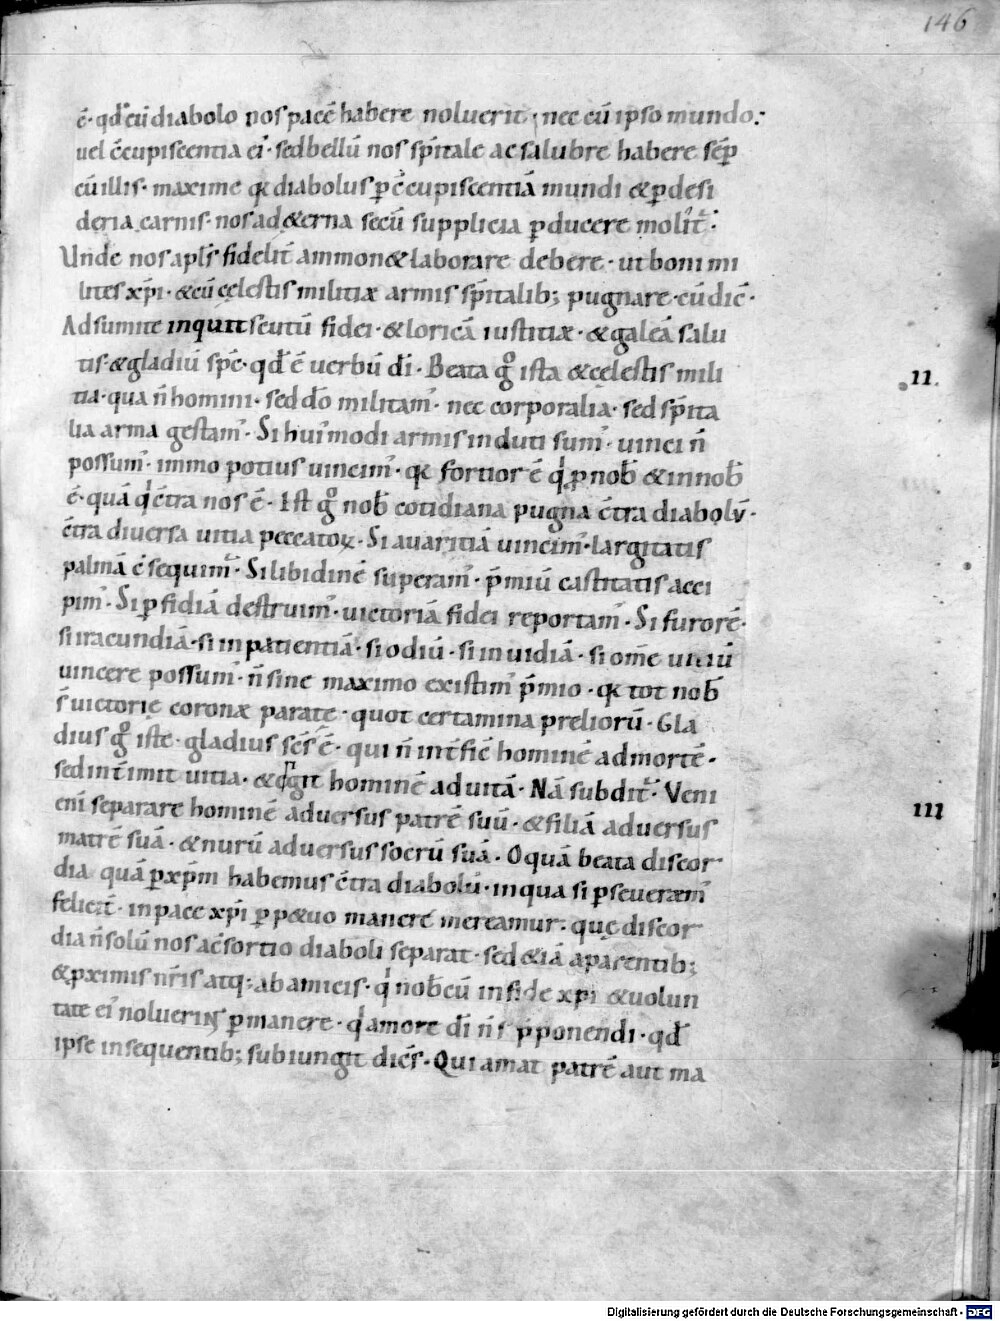 146
ē· qđ cū diabolo nos pacē habere noluerit· nec cū ipso mundo·
uel ccupiscentia ei᾽· sed bellū nos sp̄itale ac salubre habere sēp
cū illis· maxime qꝛ diabolus ꝑ ccupiscentiā mundi &ꝑ desi
deria carnis· nos ad &erna secū supplicia ꝑducere molit᷑·
Unde nos apl̄s fidelit᷑ ammon& laborare debere· ut boni mi
lites xp̄i· & cū cęlestis militiæ armis sp̄italib; pugnare· cū dic̄·
Adsumite inquit scutū fidei· & loricā iustitiæ· & galeā salu
tis· & gladiū sp̄c· qđ ē uerbū dī· Beata gͦ ista & cęlestis mili
11.
tia· qua n̄ homini· sed dō militam᾽· nec corporalia· sed sp̄ita
lia arma gestam᾽· Si hui᾽modi armis induti sum᾽· uinci n̄
possum᾽· immo potius uincim᾽· qꝛ fortior ē qͥ ꝓ nob̄ & in nob̄
ē· quā qͥ c̄tra nos ē· Ist gͦ nob̄ cotidiana pugna c̄tra diabolū·
c̄tra diuersa uitia peccatoꝝ· Si auaritiā uincim᾽· largitatis
palmā c̄sequim᷑· Si libidinē superam᾽· p̄miū castitatis acci
pim᾽· Si ꝑfidiā destruim᾽· uictoriā fidei reportam᾽· Si furorē·
si iracundiā· si inpatientiā· si odiū· si inuidiā· si om̄e uitiū
uincere possum᾽· n̄ sine maximo existim᾽ p̄mio· qꝛ tot nob̄
s̄ uictorię coronæ paratę· quot certamina preliorū· Gla
dius gͦ iste· gladius sc̄s ē· qui n̄ int᷑fic̄ hominē ad mortē·
sed int᷑imit uitia· & hominē ad uitā· Nā subdit᷑· Veni
enī separare hominē aduersus patrē suū· & filiā aduersus
111
matrē suā· & nurū aduersus socrū suā· O quā beata discor
dia quā ꝑ xp̄m habemus c̄tra diabolū· in qua si ꝑseueram᾽
felicit᷑· in pace xp̄i ꝑp&uo manere mereamur· quę discor
dia n̄ solū nos a c̄sortio diaboli separat· sed &iā a parentib;
& ꝓximis nr̄is atq; ab amicis· qͥ nob̄cū in fide xp̄i & uolun
tate ei᾽ noluerint ꝑmanere· qͥ amore dī n̄ s̄ p̄ponendi· qđ
ipse in sequentib; subiungit dic̄s· Qui amat patrē aut ma
Digitalisierung gefördert durch die Deutsche Forschungsgemeinschaft - DFG